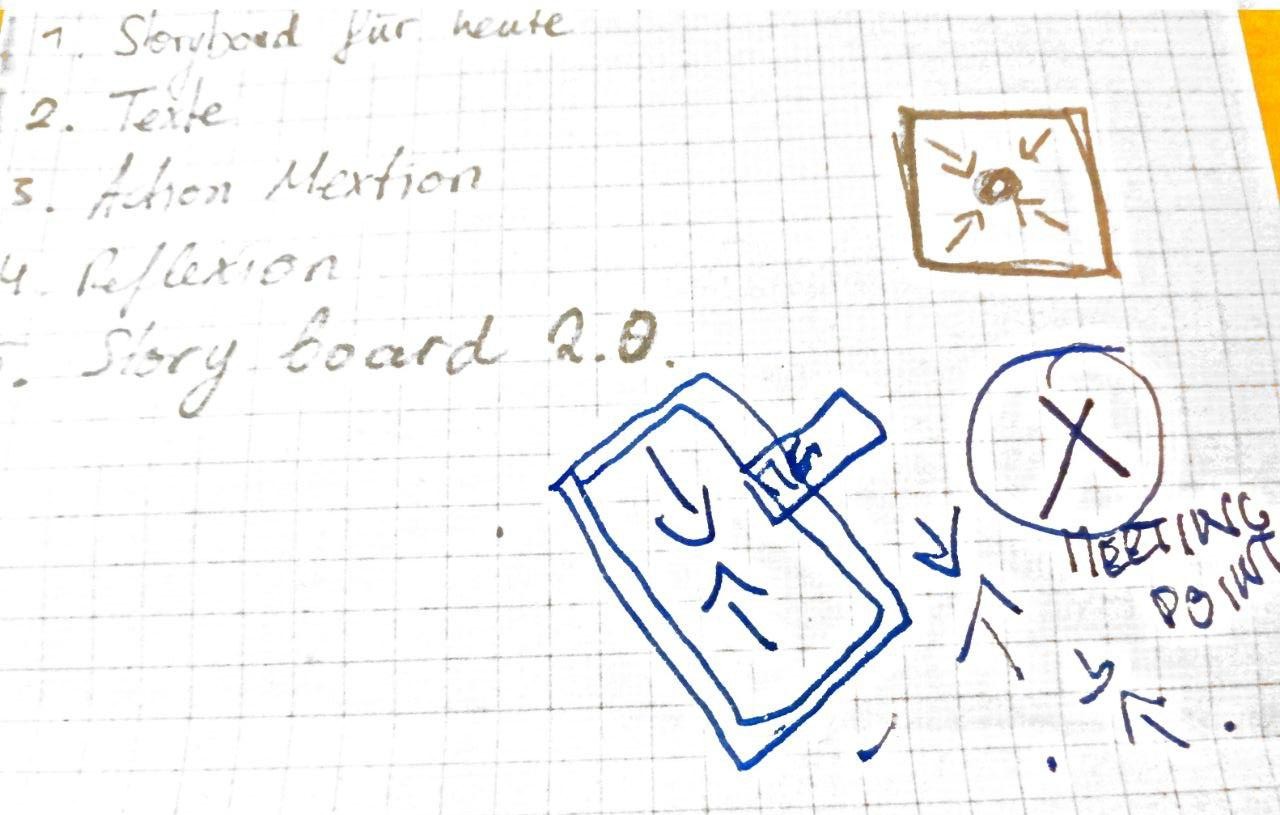 1. Storyboard für heute
2. Texte
3. Action Mextion
4. Reflexion
. Story board 2.0.
MEETING
POINT